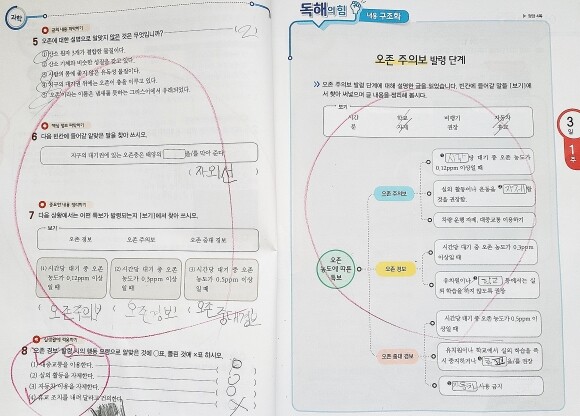 과학
글의 내용 파악하기
5 오존에 대한 설명으로 알맞지 않은 것은 무엇입니까?
( 2 )
① 산소 원자 3개가 결합한 물질이다.
② 산소 기체와 비슷한 성질을 갖고 있다.
③ 사람의 몸에 좋지 않은 유독성 물질이다.
④ 지구의 대기권 위에는 오존이 층을 이루고 있다.
⑤ 오존이라는 이름은 냄새를 뜻하는 그리스어에서 유래되었다.
핵심 정보 파악하기
6 다음 빈칸에 들어갈 알맞은 말을 찾아 쓰시오.
지구의 대기권에 있는 오존층은 태양의 을/를 막아 준다.
( 자외선 )
중요한 내용 정리하기
7 다음 상황에서는 어떤 특보가 발령되는지 [보기]에서 찾아 쓰시오.
보기
오존 경보 오존 주의보 오존 중대 경보
(1) 시간당 대기 중 오존 농도가 0.12ppm 이상일 때
(2) 시간당 대기 중 오존 농도가 0.3ppm 이상일 때
(3) 시간당 대기 중 오존 농도가 0.5ppm 이상일 때
( 오존주의보 ) ( 오존경보 ) ( 오존 중대경보 )
실생활에 적용하기
8 '오존 경보' 발령 시의 행동 요령으로 알맞은 것에 ○표, 틀린 것에 ×표 하시오.
(1) 대중교통을 이용한다. ( ○ )
(2) 실외 활동을 자제한다. ( ○ )
(3) 자동차 이용을 자제한다. ( ○ )
(4) 휴교 조치를 내려 달라고 건의한다. ( × )
독해의 힘 내용 구조화
▶ 정답 4쪽
오존 주의보 발령 단계
오존 주의보 발령 단계에 대해 설명한 글을 읽었습니다. 빈칸에 들어갈 말을 [보기]에
서 찾아 써넣으며 글 내용을 정리해 봅시다.
보기
시간 학교 비행기 자동차
분 자제 권장 휴교
오존
농도에 따른
특보
오존 주의보
시간당 대기 중 오존 농도가
0.12ppm 이상일 때
실외 활동이나 운동을 자제할
것을 권장함.
차량 운행 자제, 대중교통 이용하기
오존 경보
시간당 대기 중 오존 농도가 0.3ppm
이상일 때
유치원이나 학교 등에서는 실
외 학습을 하지 않도록 권장
오존 중대 경보
시간당 대기 중 오존 농도가 0.5ppm
이상일 때
유치원이나 학교에서 실외 학습을 즉
시 중지하거나 휴교 을/를 권장
사용 금지
3일
1주